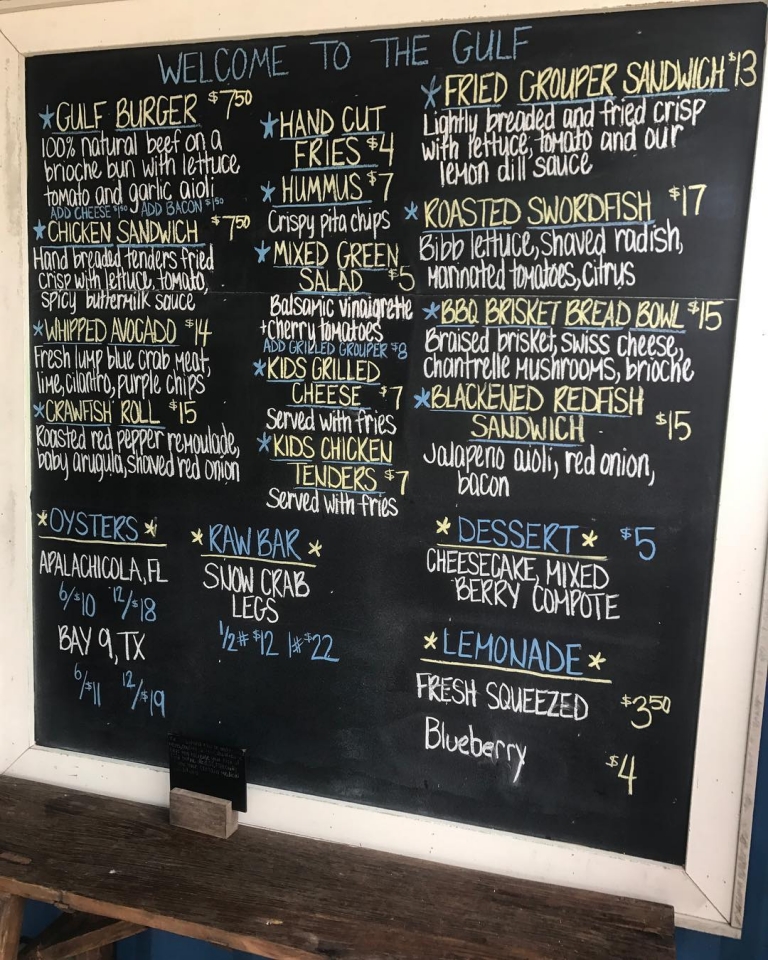 WELCOME TO THE GULF
*GULF BURGER $7⁵⁰
100% natural beef on a
brioche bun with lettuce
tomato and garlic aioli
ADD CHEESE $1⁵⁰ ADD BACON $1⁵⁰
*CHICKEN SANDWICH $7⁵⁰
Hand breaded tenders fried
crisp with lettuce, tomato,
spicy buttermilk sauce
*WHIPPED AVOCADO $14
Fresh lump blue crab meat,
lime, cilantro, purple chips
*CRAWFISH ROLL $15
Roasted red pepper remoulade,
baby arugula, shaved red onion
*HAND CUT
FRIES $4
*HUMMUS $7
Crispy pita chips
*MIXED GREEN
SALAD $5
Balsamic vinaigrette
+cherry tomatoes
ADD GRILLED GROUPER $8
*KIDS GRILLED
CHEESE $7
Served with fries
*KIDS CHICKEN
TENDERS $7
Served with fries
*FRIED GROUPER SANDWICH $13
Lightly breaded and fried crisp
with lettuce, tomato and our
lemon dill sauce
*ROASTED SWORDFISH $17
Bibb lettuce, shaved radish,
marinated tomatoes, citrus
*BBQ BRISKET BREAD BOWL $15
Braised brisket, swiss cheese,
chantrelle mushrooms, brioche
*BLACKENED REDFISH
SANDWICH $15
Jalapeno aioli, red onion,
bacon
*OYSTERS*
APALACHICOLA, FL
6/$10 12/$18
BAY 9, TX
6/$11 12/$19
*RAW BAR*
SNOW CRAB
LEGS
1/2# $12 1# $22
*DESSERT* $5
CHEESECAKE, MIXED
BERRY COMPOTE
*LEMONADE*
FRESH SQUEEZED $3⁵⁰
Blueberry $4